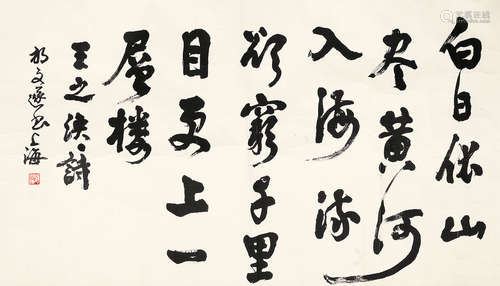 白日依山
尽黄河
入海流
欲穷千里
目更上一
层楼
王之涣诗
胡文遂书上海